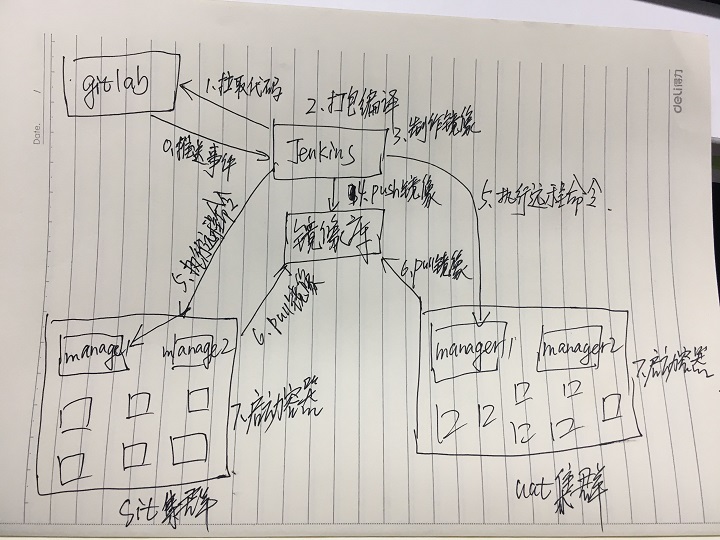 Date. /
deli得力
gitlab
1.拉取代码
2.打包编译
3.制作镜像
0.推送事件
Jenkins
4.push镜像
5.执行远程命令
5.执行远程命令
镜像库
6.pull镜像
6.pull镜像
manage1
manage2
manager1
manager2
7.启动容器
7.启动容器
sit集群
uat集群